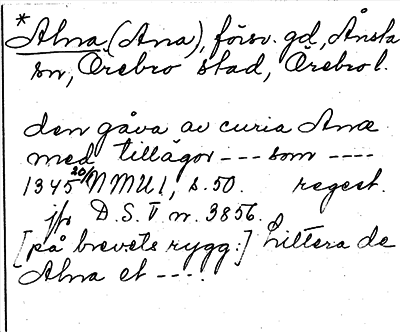 *Alna (Ana), försv. gd, Ånsta
sn, Örebro stad, Örebro l.
den gåva av curia Anæ
med tillägor --- som ----
1345 20/1 NMU1, s. 50. regest.
jfr D.S. V nr. 3856.
[på brevets rygg:] Littera de
Alna et ----.